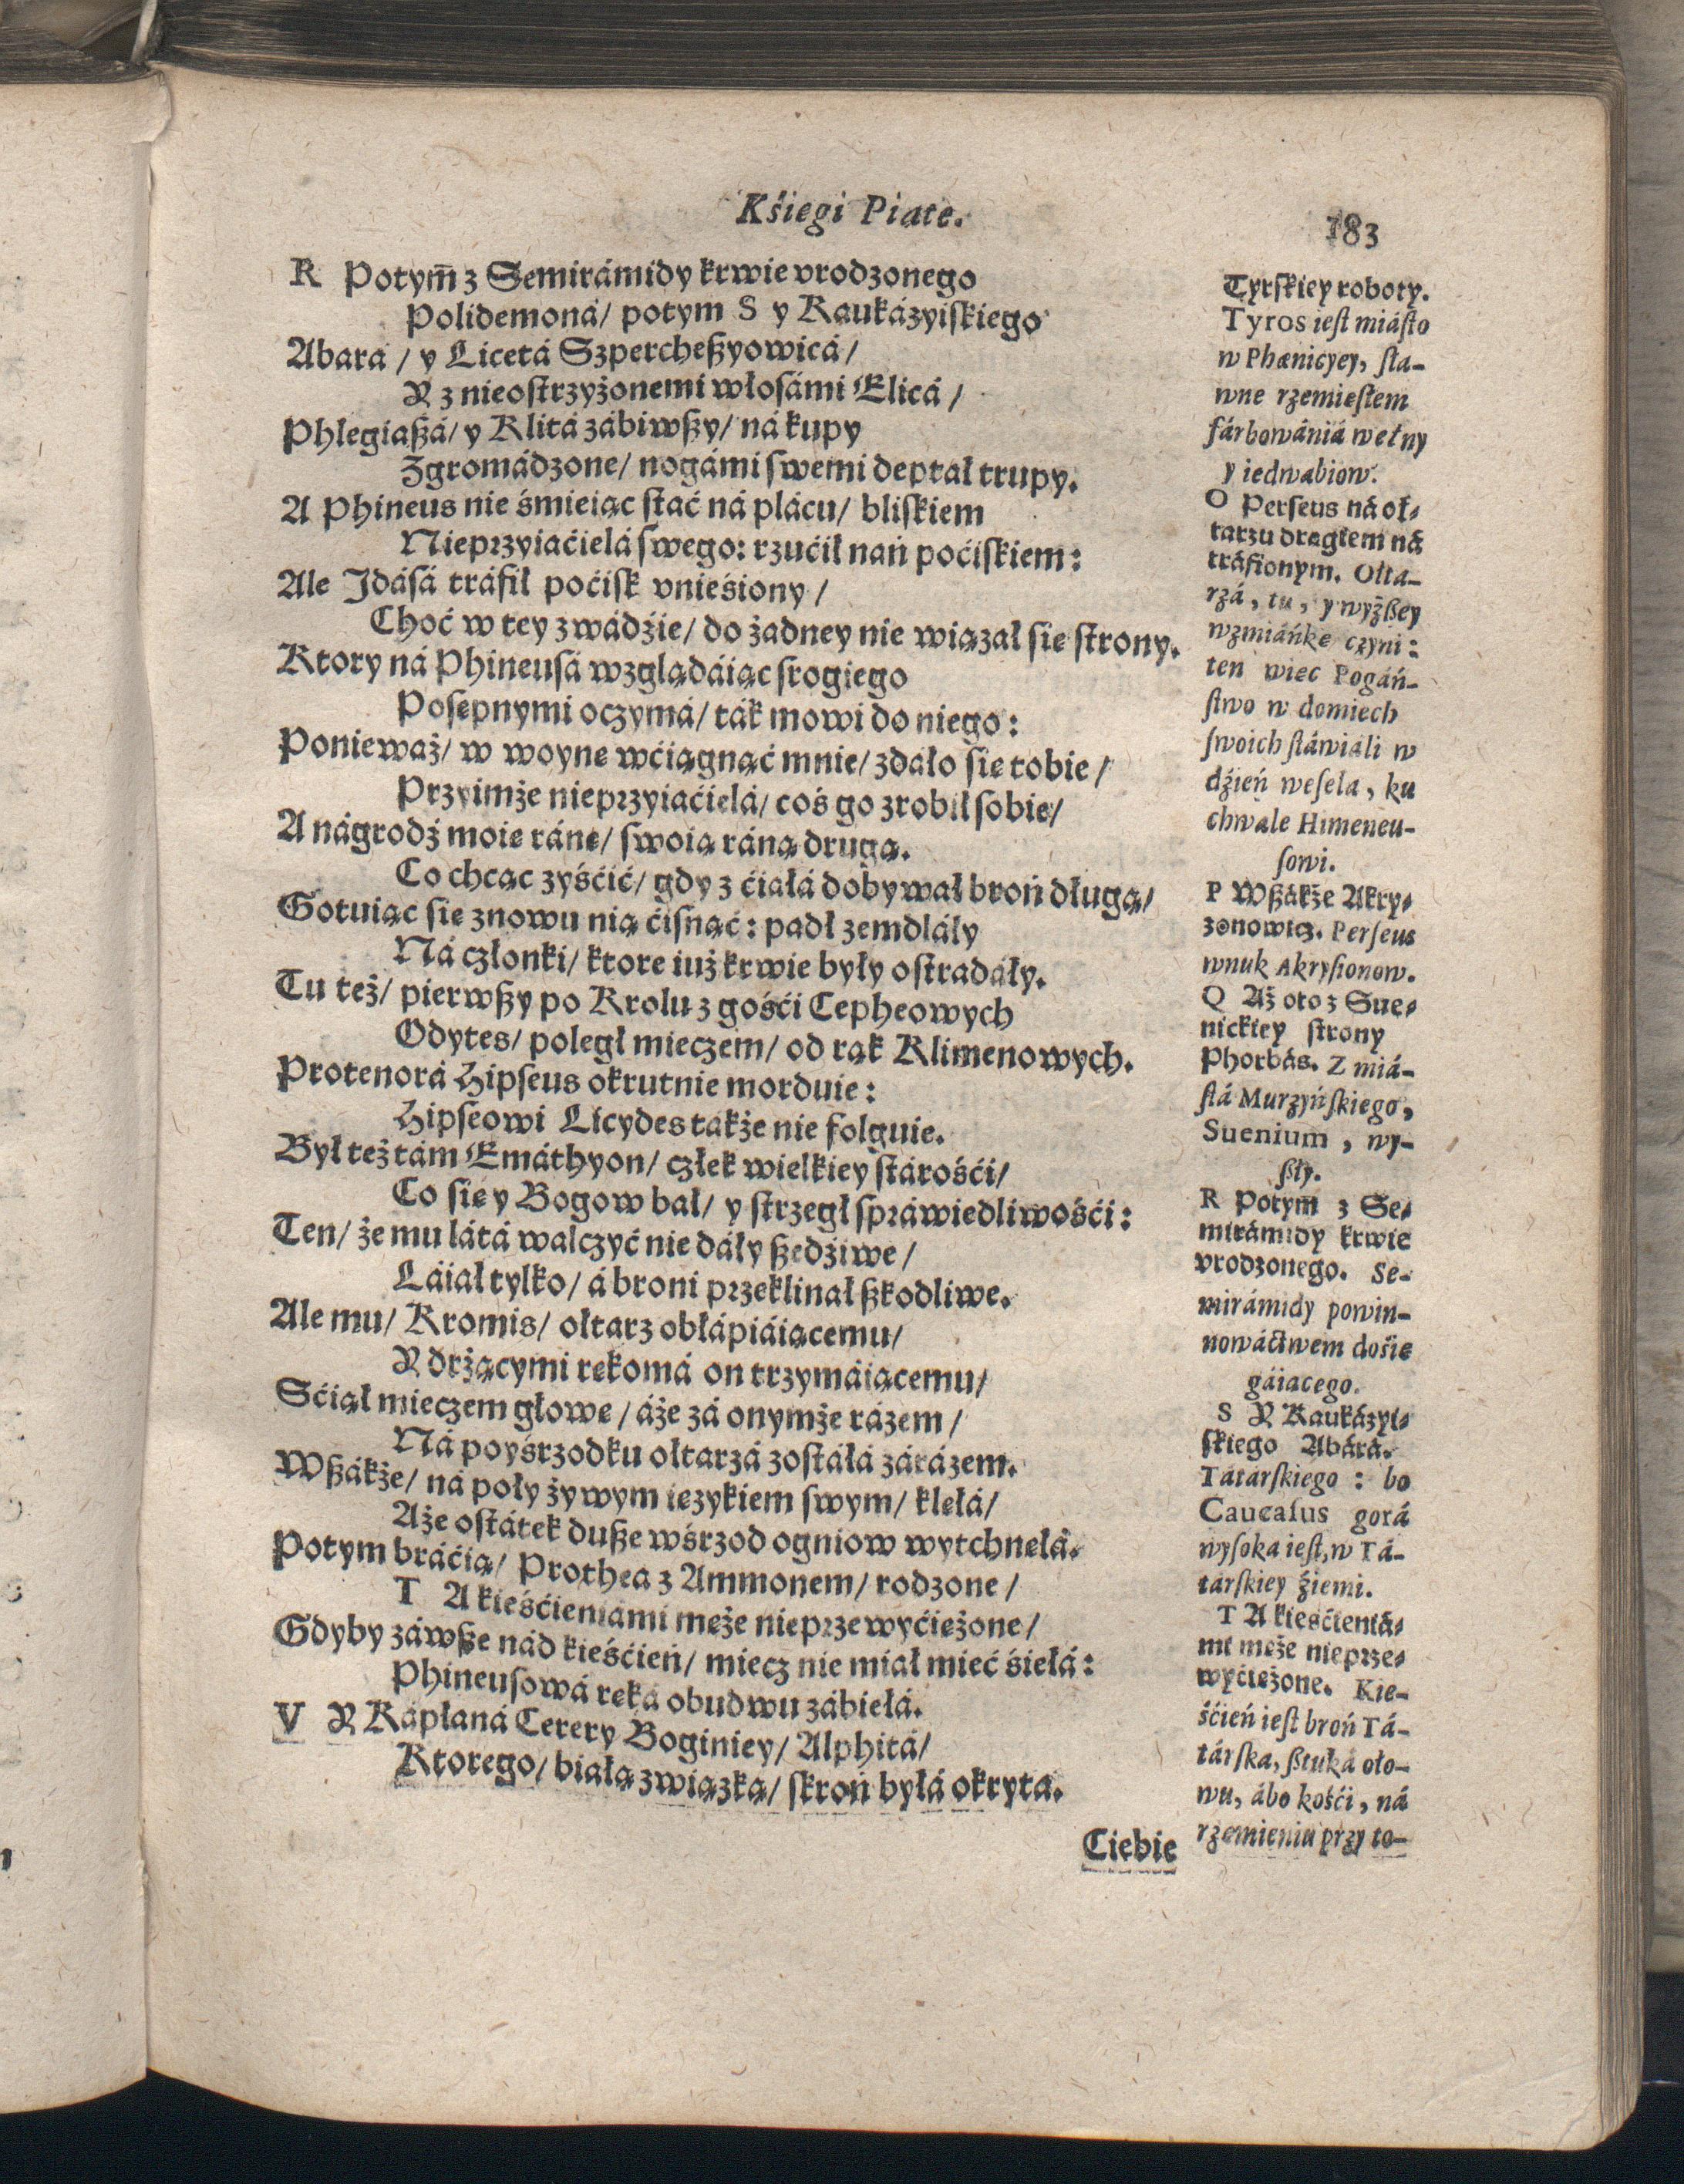 Kśięgi Piąte.
183
R Potym̄ z Semirámidy krwie vrodzonego
Polidemoná/ potym S y Kaukázyiſkiego
Abara / y Licetá Szpercheßyowicá /
Y z nieoſtrzyżonemi włoſámi Elicá /
Phlegiaßá/ y Klitá zábiwßy/ ná kupy
Zgromádzone/ nogámi ſwemi deptał trupy.
A Phineus nie śmieiąc ſtać ná plácu/ bliſkiem
Nieprzyiaćielá ſwego: rzućił nań poćiſkiem:
Ale Jdáſá tráfił poćiſk vnieśiony /
Choć w tey zwádźie/ do żadney nie wiązał ſie ſtrony.
Ktory ná Phineuſá wzglądáiąc ſrogiego
Poſępnymi oczymá/ ták mowi do niego:
Ponieważ/ w woynę wćiągnąć mnie/ zdáło ſię tobie /
Przyimże nieprzyiaćielá/ coś go zrobił ſobie/
A nágrodź moię ránę/ ſwoią ráną drugą.
Co chcąc zyśćić/ gdy z ćiáłá dobywał broń długą/
Gotuiąc ſie znowu nią ćiſnąć: padł zemdláły
Ná członki/ ktore iuż krwie były oſtradáły.
Tu też/ pierwßy po Krolu z gośći Cepheowych
Odytes/ poległ mieczem/ od rąk Klimenowych.
Protenorá Hipſeus okrutnie morduie:
Hipſeowi Licydes tákże nie folguie.
Był też tám Emáthyon/ człek wielkiey ſtárośći/
Co ſię y Bogow bał/ y ſtrzegł ſpráwiedliwośći:
Ten/ że mu látá walczyć nie dáły ßedźiwe /
Láiał tylko/ á broni przeklinał ßkodliwe.
Ale mu/ Kromis/ ołtarz obłápiáiącemu/
Y drżącymi rękomá on trzymáiącemu/
Sćiął mieczem głowę / áże zá onymże rázem /
Ná poyśrzodku ołtarzá zoſtáłá zárázem.
Wßákże/ ná poły żywym ięzykiem ſwym/ klęłá/
Aże oſtátek dußę wśrzod ogniow wytchnęłá.
Potym bráćią/ Prothea z Ammonem/ rodzone /
T A kieśćieniámi męże nieprzewyćiężone /
Gdyby záwße nád kieśćień/ miecz nie miał mieć śiełá:
Phineuſowá ręká obudwu zábiełá.
V Y Kápłaná Cerery Boginiey/ Alphitá/
Ktorego/ białą związką/ ſkroń byłá okryta.
Ciebie
Tyrſkiey roboty.
Tyros ieſt miáſto
w Phœnicyey, ſła-
wne rzemieſłem
fárbowániá wełny
y iedwabiow.
O Perſeus ná oł-
tarzu drągłem ná
tráfionym. Ołta-
rzá, tu, y wyżßey
wzmiánkę czyni:
ten więc Pogáń-
ſtwo w domiech
ſwoich ſtáwiáli w
dźień weſela, ku
chwale Himeneu-
ſowi.
P Wßákże Akry-
zonowicz. Perſeus
wnuk Akryſionow.
Q Aż oto z Sue-
nickiey ſtrony
Phorbás. Z miá-
ſtá Murzyńſkiego,
Suenium, wy-
ßły.
R Potym̄ z Se-
mirámidy krwie
vrodzonego. Se-
mirámidy powin-
nowáctwem dośię
gáiącego.
S Y Kaukázyi-
ſkiego Abárá.
Tátárſkiego : bo
Caucaſus gorá
wyſoka ieſt, w Tá-
tárſkiey źiemi.
T A kieśćieniá-
mi męże nieprze-
wyćiężone. Kie-
śćień ieſt broń Tá-
tárſka, ßtuká oło-
wu, ábo kośći, ná
rzemieniu przy to-